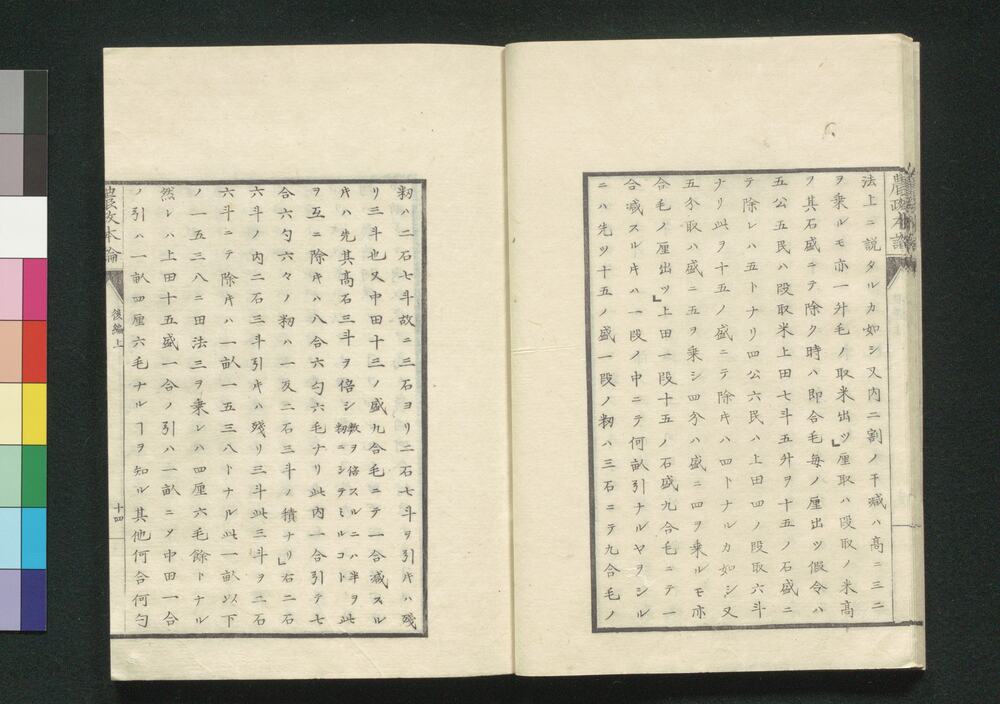 法上ニ説タルカ如シ又内ニ割ノ干減ハ高ニ三ニ
ヲ乘ルモ亦一升毛ノ取米出ツ」厘取ハ段取ノ米高
ヲ其石盛ニテ除ク時ハ即合毛毎ノ厘出ツ假令ハ
五公五民ハ段取米上田七斗五升ヲ十五ノ石盛ニ
テ除レハ五トナリ四公六民ハ上田四ノ段取六斗
ナリ此ヲ十五ノ盛ニテ除キハ四トナルカ如シ又
五分取ハ盛ニ五ヲ乘シ四分ハ盛ニ四ヲ乘ルモ亦
合毛ノ厘出ツ」上田一段十五ノ石盛九合毛ニテ一
合減スルキハ一段ノ中ニテ何畝引ナルヤヲシル
ニハ先ツ十五ノ盛一段ノ籾ハ三石ニテ九合毛ノ
籾ハ二石七斗故ニ三石ヨリ二石七斗ヲ引キハ殘
リ三斗也又中田十三ノ盛九合毛ニテ一合減スル
キハ先其高石三斗ヲ倍シ數ヲ倍スルニハ半ヲ籾ニシテミルコト此
ヲ互ニ除キハ八合六勺六毛ナリ此内一合引テ七
合六勺六々ノ籾ハ一反二石三斗ノ積ナリ」右二石
六斗ノ内二石三斗引キハ殘リ三斗此三斗ヲ二石
六斗ニテ除キハ一畝一五三八トナル此一畝以下
ノ一五三八ニ田法三ヲ乘レハ四厘六毛餘トナル
然レハ上田十五盛一合ノ引ハ一畝ニ〆中田一合
ノ引ハ一畝四厘六毛ナルヿヲ知ル其他何合何勺
農政本論
後編上
十四
農政本論